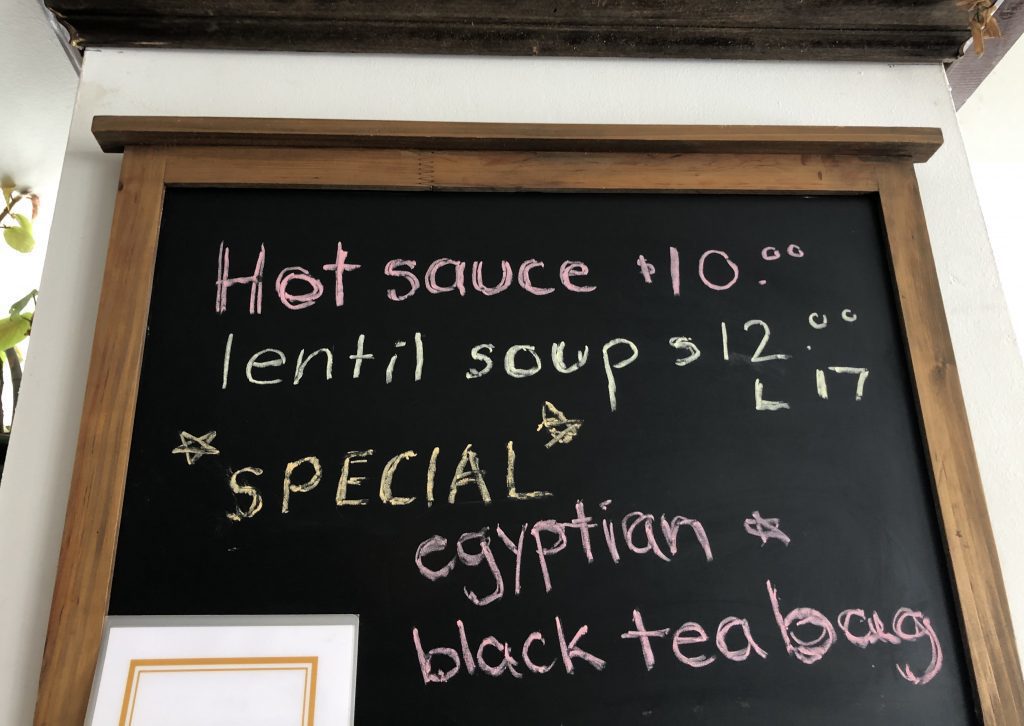 Hot sauce $10.00
lentil soup $12.00
L 17
SPECIAL
egyptian
black tea bag